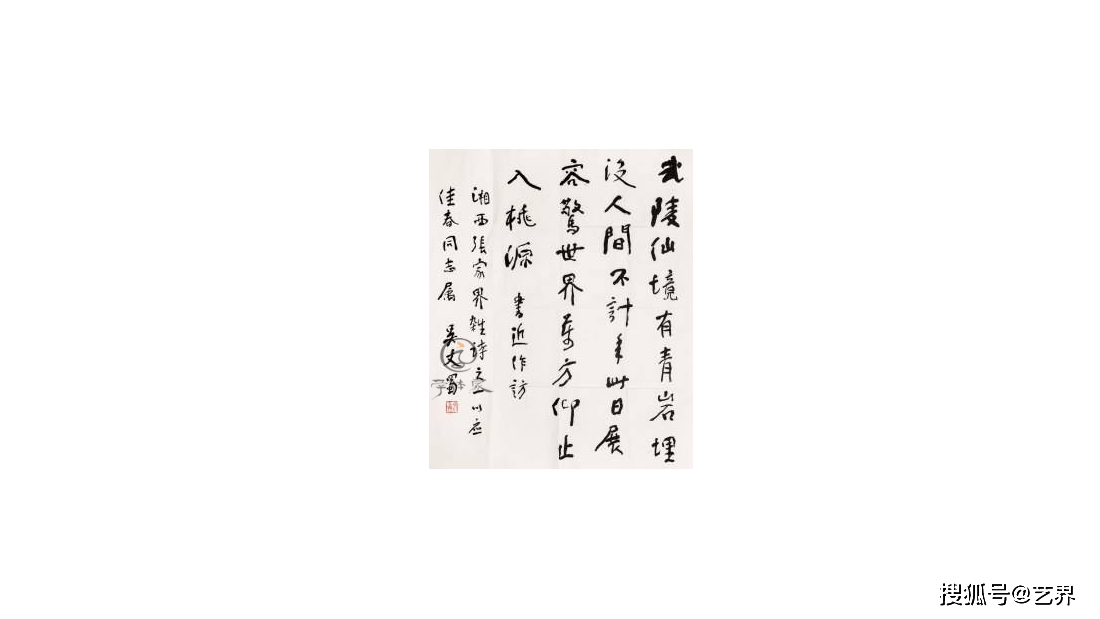 武陵仙境有青岩埋
没人間不計年此日展
容驚世界萬方仰止
入桃源 書近作訪
湘西張家界雜詩之一以应
佳春同志属 吴丈蜀
搜狐号@艺界